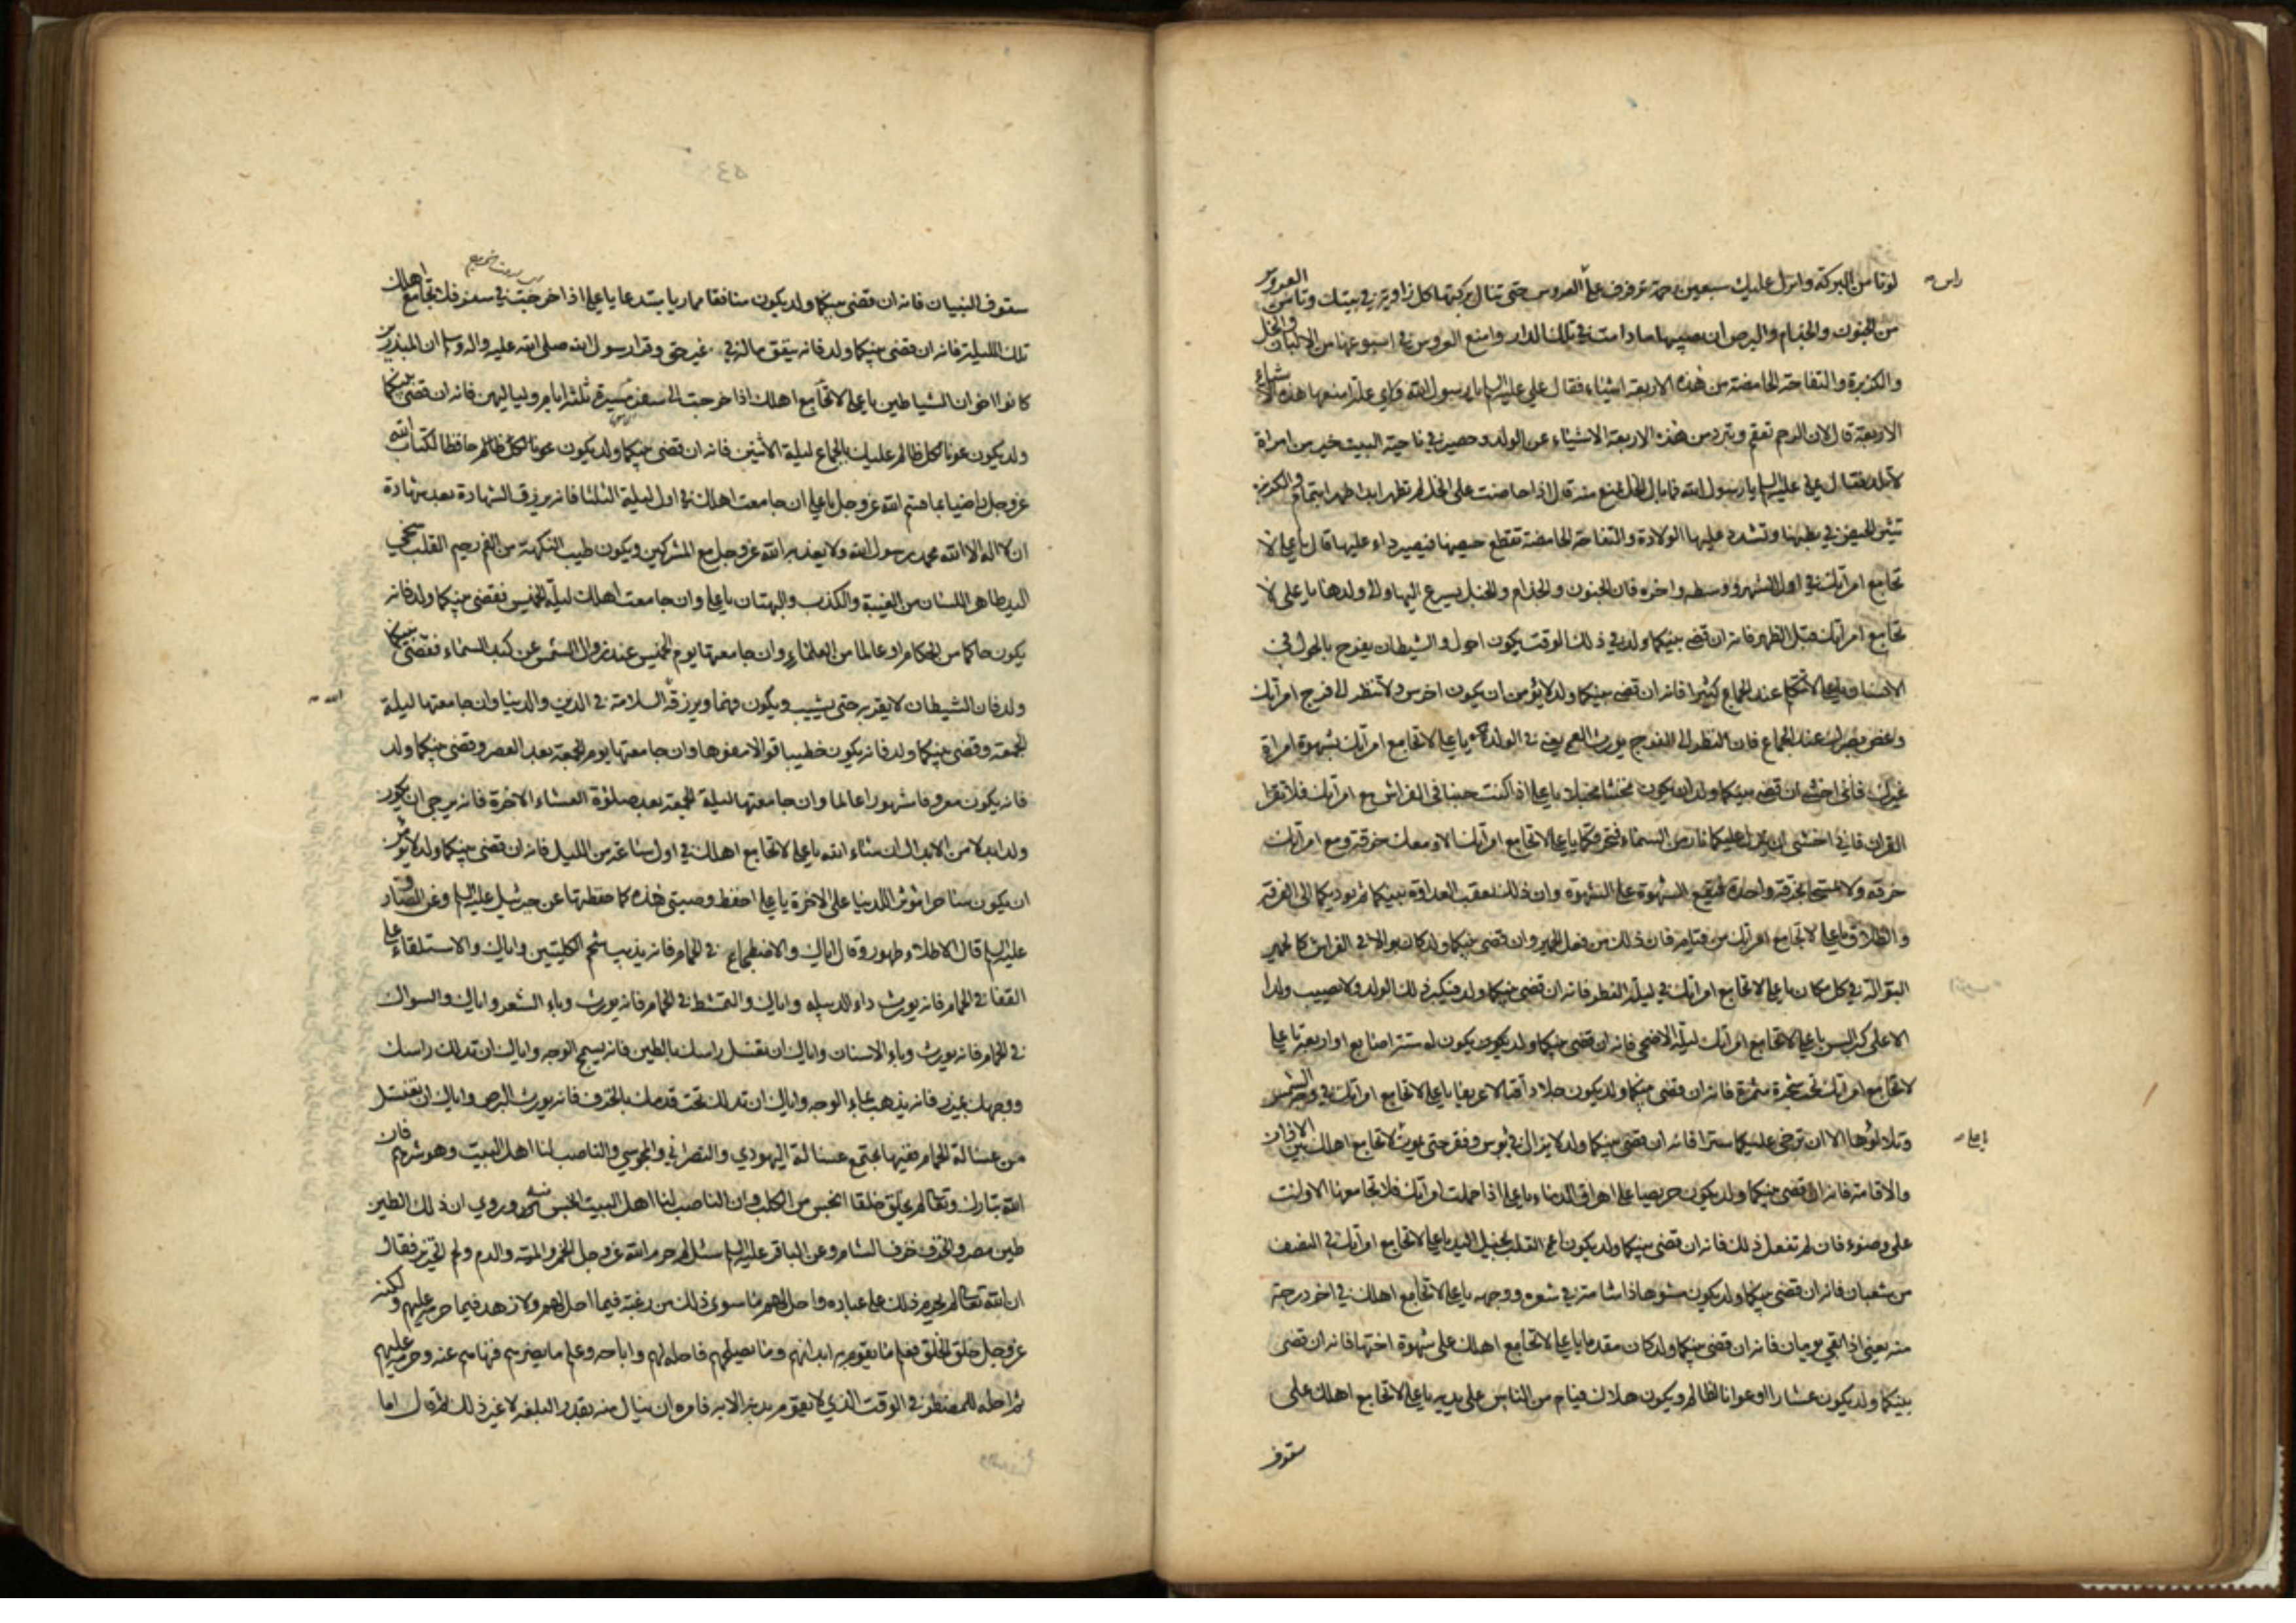 لونا من البركة وانزل عليك سبعين رحمة ترفرف على العروس حتى تنال بركتها كل زاوية في بيتك وتامن العروس
من الجنون والجذام والبرص ان يصيبها ما دامت في تلك الدار وامنع العروس في اسبوعها من الالبان والخل
والكزبرة والتفاحة الحامضة من هذه الاربعة اشياء فقال علي عليه السلم يا رسول الله ولاي علة امنعها هذه الاشياء
الاربعة قال لان الرحم تعقم وتبرد من هذه الاربعة الاشياء عن الولد وحصير في ناحية البيت خير من امراة
لا تلد فقال علي عليه السلم يا رسول الله فما بال الخل تمنع منه قال اذا حاضت على الخل لم تطهر ابدا طهرا بتمام والكزبرة
تثير الحيض في بطنها وتشدد عليها الولادة والتفاحة الحامضة تقطع حيضها فيصير داء عليها قال يا علي لا
تجامع امراتك في اول الشهر ووسطه واخره فان الجنون والجذام والخبل يسرع اليها والى ولدها يا علي لا
تجامع امراتك قبل الظهر فانه ان قضى بينكما ولد في ذلك الوقت يكون احول والشيطان يفرح بالحول في
الانسان يا علي لا تتكلم عند الجماع كثيرا فانه ان قضى بينكما ولد لا يؤمن ان يكون اخرس ولا تنظر الى فرج امراتك
وغض بصرك عند الجماع فان النظر الى الفرج يورث العمى يعني في الولد يا علي لا تجامع امراتك بشهوة امراة
غيرك فاني اخشى ان قضى بينكما ولد ان يكون مخنثا مخبلا يا علي اذا كنت جنبا في الفراش مع امراتك فلا تقرا
القران فاني اخشى ان ينزل عليكما نار من السماء فتحرقكما يا علي لا تجامع امراتك الا ومعك خرقة ومع امراتك
خرقة ولا تمسحا بخرقة واحدة فيقع الشهوة على الشهوة وان ذلك يعقب العداوة بينكما ثم يوديكما الى الفرقة
والطلاق يا علي لا تجامع امراتك من قيام فان ذلك من فعل الحمير وان قضى بينكما ولد كان بوالا في الفراش كالحمير
البوالة في كل مكان يا علي لا تجامع امراتك في ليلة الفطر فانه ان قضى بينكما ولد فيكبر ذلك الولد ولا يصيب ولدا
الا على كبر السن يا علي لا تجامع امراتك ليلة الاضحى فانه ان قضى بينكما ولد يكون يكون له ستة اصابع او اربعة يا علي
لا تجامع امراتك تحت شجرة مثمرة فانه ان قضى بينكما ولد يكون جلادا قتالا عريفا يا علي لا تجامع امراتك في وجه الشمس
وتلالؤها الا ان ترخي عليكما سترا فانه ان قضى بينكما ولد لا يزال في بؤس وفقر حتى يموت لا تجامع اهلك بين الاذان
والاقامة فانه ان قضى بينكما ولد يكون حريصا على اهراق الدماء يا علي اذا حملت امراتك فلا تجامعها الا وانت
على وضوء فان لم تفعل ذلك فانه ان قضى بينكما ولد يكون اعمى القلب بخيل اليد يا علي لا تجامع امراتك في النصف
من شعبان فانه ان قضى بينكما ولد يكون مشوها ذا شامة في شعره ووجهه يا علي لا تجامع اهلك في اخر درجة
منه يعني اذا بقي يومان فانه ان قضى بينكما ولد كان مقدما يا علي لا تجامع اهلك على شهوة اختها فانه ان قضى
بينكما ولد يكون عشارا او عونا للظالم ويكون هلاك فيام من الناس على يديه يا علي لا تجامع اهلك على
سقوف
سقوف البنيان فانه ان قضى بينكما ولد يكون منافقا مماريا مبتدعا يا علي اذا خرجت في سفر فلا تجامع اهلك
تلك الليلة فانه ان قضى بينكما ولد فانه ينفق ماله في غير حق وقرا رسول الله صلى الله عليه واله وسلم ان المبذرين
كانوا اخوان الشياطين يا علي لا تجامع اهلك اذا خرجت الى سفر مسيرة ثلثة ايام ولياليهن فانه ان قضى بينكما
ولد يكون عونا لكل ظالم عليك بالجماع ليلة الاثنين فانه ان قضى بينكما ولد يكون حافظا لكتاب الله
عز وجل راضيا بما قسم الله عز وجل يا علي ان جامعت اهلك في اول ليلة الثلثا فانه يرزق الشهادة بعد شهادة
ان لا اله الا الله محمد رسول الله ولا يعذبه الله عز وجل مع المشركين ويكون طيب النكهة من الفم رحيم القلب سخي
اليد طاهر اللسان من الغيبة والكذب والبهتان يا علي وان جامعت اهلك ليلة الخميس فقضى بينكما ولد فانه
يكون حاكما من الحكام او عالما من العلماء وان جامعتها يوم الخميس عند زوال الشمس عن كبد السماء فقضى بينكما
ولد فان الشيطان لا يقربه حتى يشيب ويكون فهما ويرزقه السلامة في الدين والدنيا وان جامعتها ليلة
الجمعة وقضى بينكما ولد فانه يكون خطيبا قوالا مفوها وان جامعتها يوم الجمعة بعد العصر وقضى بينكما ولد
فانه يكون معروفا مشهورا عالما وان جامعتها ليلة الجمعة بعد صلوة العشاء الاخرة فانه يرجى ان يكون
ولد ابدلا من الابدال ان شاء الله يا علي لا تجامع اهلك في اول ساعة من الليل فانه ان قضى بينكما ولد لا يؤمن
ان يكون ساحرا مؤثرا للدنيا على الاخرة يا علي احفظ وصيتي هذه كما حفظتها عن جبرئيل عليه السلم وعن الصادق
عليه السلم قال الاطلاء طهور وقال اياك والاضطجاع في الحمام فانه يذيب شحم الكليتين واياك والاستلقاء على
القفا في الحمام فانه يورث داء الدبيلة واياك والتمشط في الحمام فانه يورث وباء الشعر واياك والسواك
في الحمام فانه يورث وباء الاسنان واياك ان تغسل راسك بالطين فانه يسمج الوجه واياك ان تدلك راسك
ووجهك بميزر فانه يذهب بماء الوجه واياك ان تدلك تحت قدمك بالخزف فانه يورث البرص واياك ان تغتسل
من غسالة الحمام ففيها تجتمع غسالة اليهودي والنصراني والمجوسي والناصب لنا اهل البيت وهو شرهم فان
الله تبارك وتعالى لم يخلق خلقا انجس من الكلب وان الناصب لنا اهل البيت انجس منه وروي ان ذلك الطين
طين مصر والخزف خزف الشام وعن الباقر عليه السلم سئل لم حرم الله عز وجل الخمر والميتة والدم ولحم الخنزير فقال
ان الله تعالى لم يحرم ذلك على عباده واحل لهم ما سوى ذلك من رغبة فيما احل لهم ولا زهد فيما حرمه عليهم ولكنه
عز وجل خلق الخلق فعلم ما يقوم به ابدانهم وما يصلحهم فاحله لهم واباحه وعلم ما يضرهم فنهاهم عنه وحرمه عليهم
ثم احله للمضطر في الوقت الذي لا يقوم بدنه الا به فامره ان ينال منه بقدر البلغة لا غير ذلك ثم قال اما